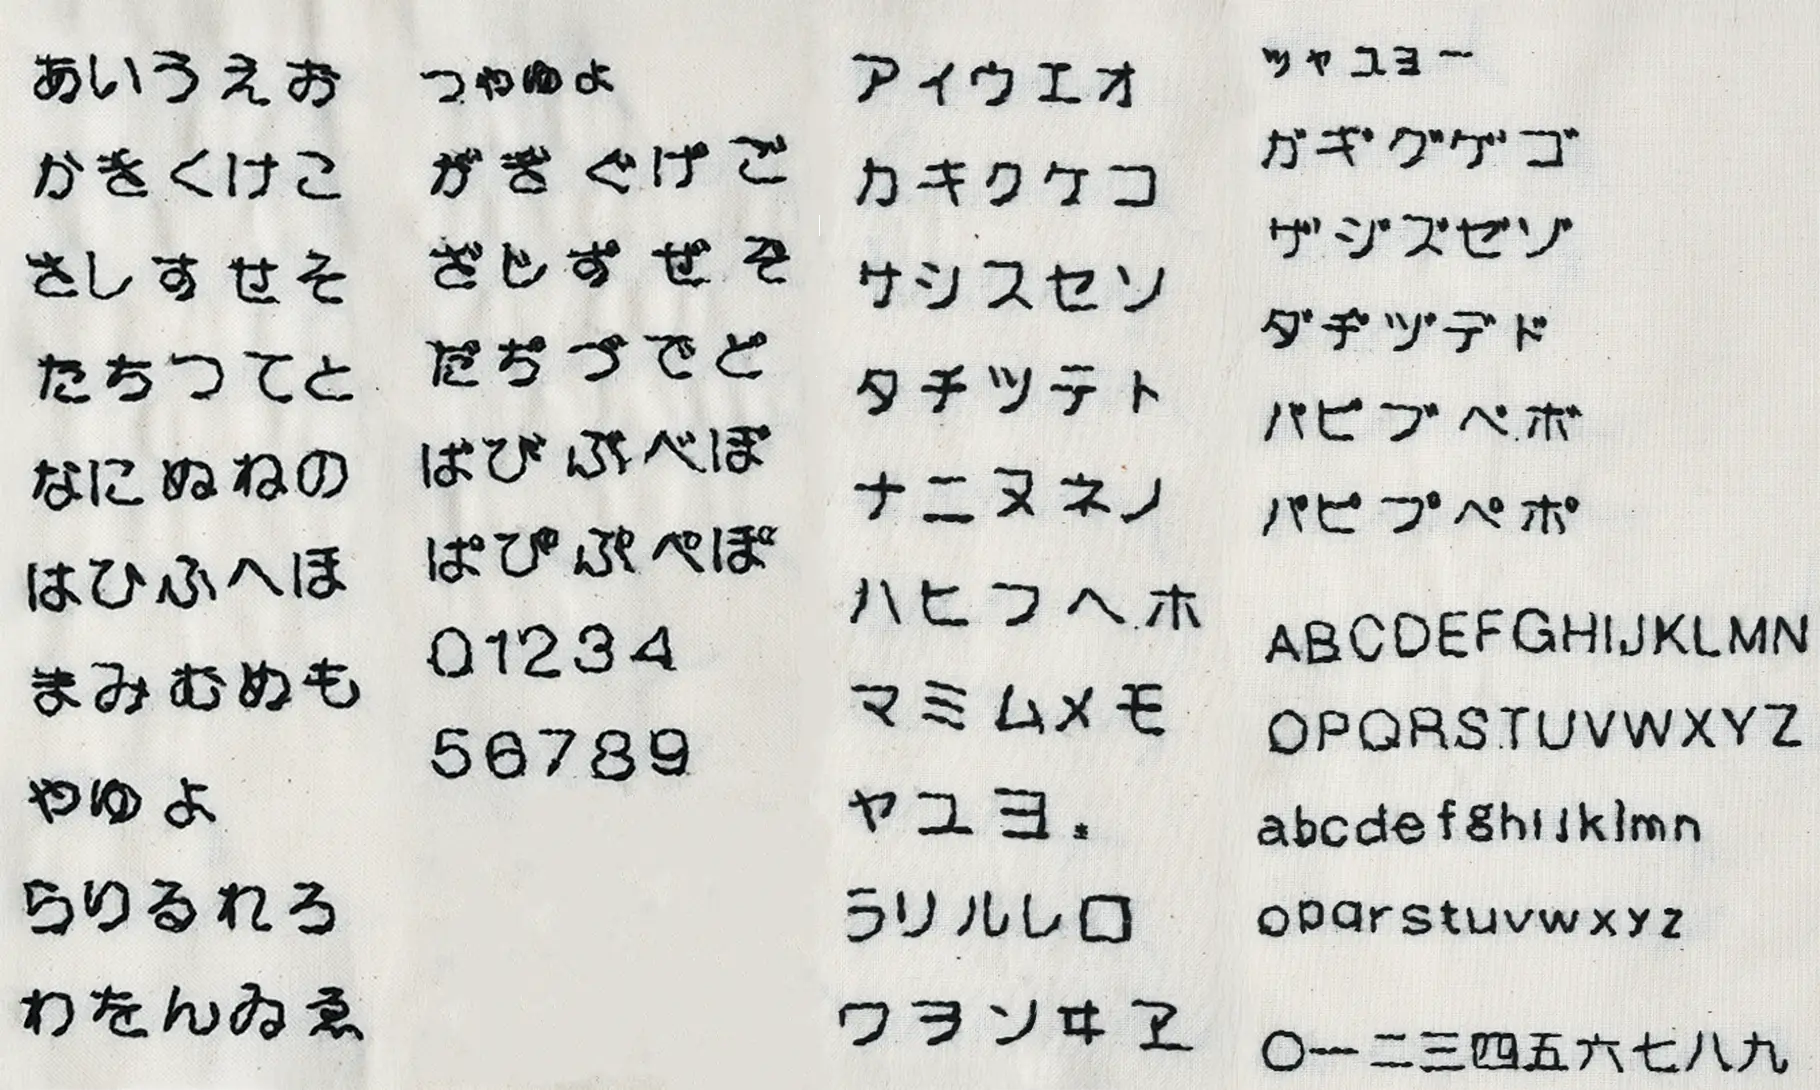 あいうえお
かきくけこ
さしすせそ
たちつてと
なにぬねの
はひふへほ
まみむめも
やゆよ
らりるれろ
わをんゐゑ
っゃゅょ
がぎぐげご
ざじずぜぞ
だぢづでど
ばびぶべぼ
ぱぴぷぺぽ
01234
56789
アイウエオ
カキクケコ
サシスセソ
タチツテト
ナニヌネノ
ハヒフヘホ
マミムメモ
ヤユヨ.
ラリルレロ
ワヲンヰヱ
ッャュョー
ガギグゲゴ
ザジズゼゾ
ダヂヅデド
バビブベボ
パピプペポ
ABCDEFGHIJKLMN
OPQRSTUVWXYZ
abcdefghijklmn
opqrstuvwxyz
〇一二三四五六七八九